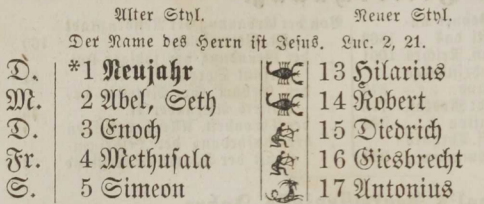 Alter Styl. Neuer Styl.
Der Name des Herrn ist Jesus. Luc. 2, 21.
D. *1 Neujahr 13 Hilarius
M. 2 Abel, Seth 14 Robert
D. 3 Enoch 15 Diedrich
Fr. 4 Methusala 16 Giesbrecht
S. 5 Simeon 17 Antonius